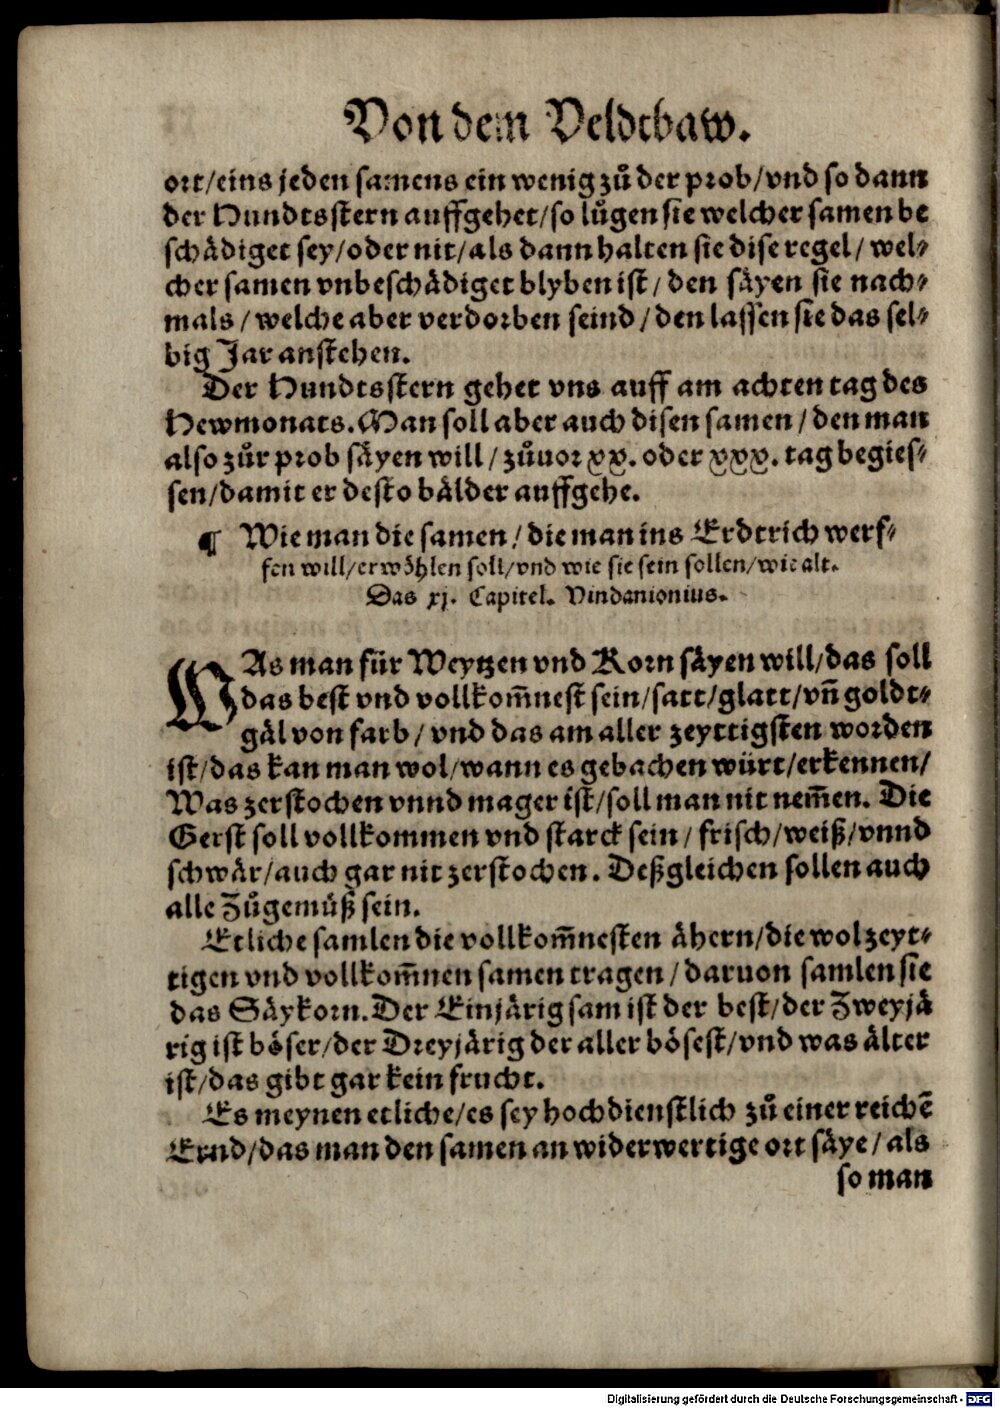 Von dem Veldtbaw.
ort/eins jeden samens ein wenig zů der prob/vnd so dann
der Hundtsstern auffgehet/so lůgen sie welcher samen be
schädiget sey/oder nit/als dann halten sie dise regel/ wel⸗
cher samen vnbeschädiget blyben ist/ den säyen sie nach⸗
mals/ welche aber verdorben seind/ den lassen sie das sel⸗
big Jar anstehen.
Der Hundtsstern gehet vns auff am achten tag des
Hewmonats. Man soll aber auch disen samen/ den man
also zůr prob säyen will/ zůuor xx. oder xxx. tag begies⸗
sen/damit er desto bälder auffgehe.
¶ Wie man die samen/ die man ins Erdtrich werf⸗
fen will/erwöhlen soll/vnd wie sie sein sollen/wie alt.
Das xj. Capitel. Vindanionius.
WAs man für Weytzen vnd Korn säyen will/das soll
das best vnd vollkom̃nest sein/satt/glatt/vñ goldt⸗
gäl von farb/ vnd das am aller zeyttigsten worden
ist/das kan man wol/wann es gebachen würt/erkennen/
Was zerstochen vnnd mager ist/soll man nit nem̃en. Die
Gerst soll vollkommen vnd starck sein/ frisch/weiß/vnnd
schwär/auch gar nit zerstochen. Deßgleichen sollen auch
alle Zůgemüß sein.
Etliche samlen die vollkom̃nesten ähern/die wol zeyt⸗
tigen vnd vollkom̃nen samen tragen/ daruon samlen sie
das Säykorn. Der Einjärig sam ist der best/der Zweyjä
rig ist böser/der Dreyjärig der aller bösest/vnd was älter
ist/das gibt gar kein frucht.
Es meynen etliche/es sey hochdienstlich zů einer reichē
Ernd/das man den samen an widerwertige ort säye/ als
so man
Digitalisierung gefördert durch die Deutsche Forschungsgemeinschaft - DFG